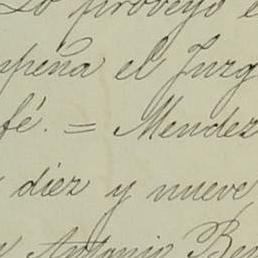 Lo proveyó e
mpeña el Juzg
fé. = Mendez
diez y nueve
Antonio Be